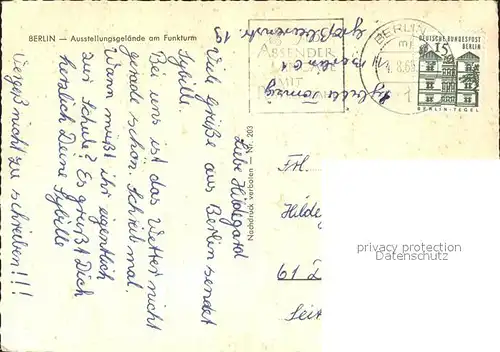 BERLIN – Ausstellungsgelände am Funkturm
Liebe Hildegard
Viele Grüße aus Berlin sendet
Sybille.
Bei uns ist das Wetter nicht
gerade schön. Schreib mal.
Wann müßt ihr eigentlich
zur Schule? Es grüßt Dich
herzlich Deine Sybille
Vergeß nicht zu schreiben!!!
Nachdruck verboten – Nr. 203
ABSENDER
MIT
BERLIN
4. 8. 65
1
DEUTSCHE BUNDESPOST
BERLIN
15
BERLIN-TEGEL
Frl.
61
privacy protection
Datenschutz